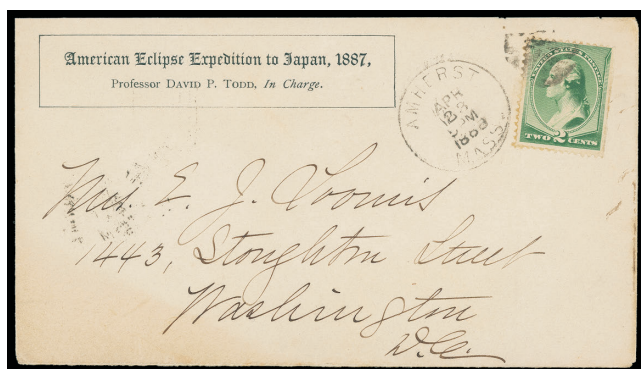 American Eclipse Expedition to Japan, 1887,
Professor DAVID P. TODD, In Charge.
AMHERST
APR
1888
MASS.
TWO 2 CENTS
Mrs. E. J. Loomis
1443, Stoughton Street
Washington
D.C.